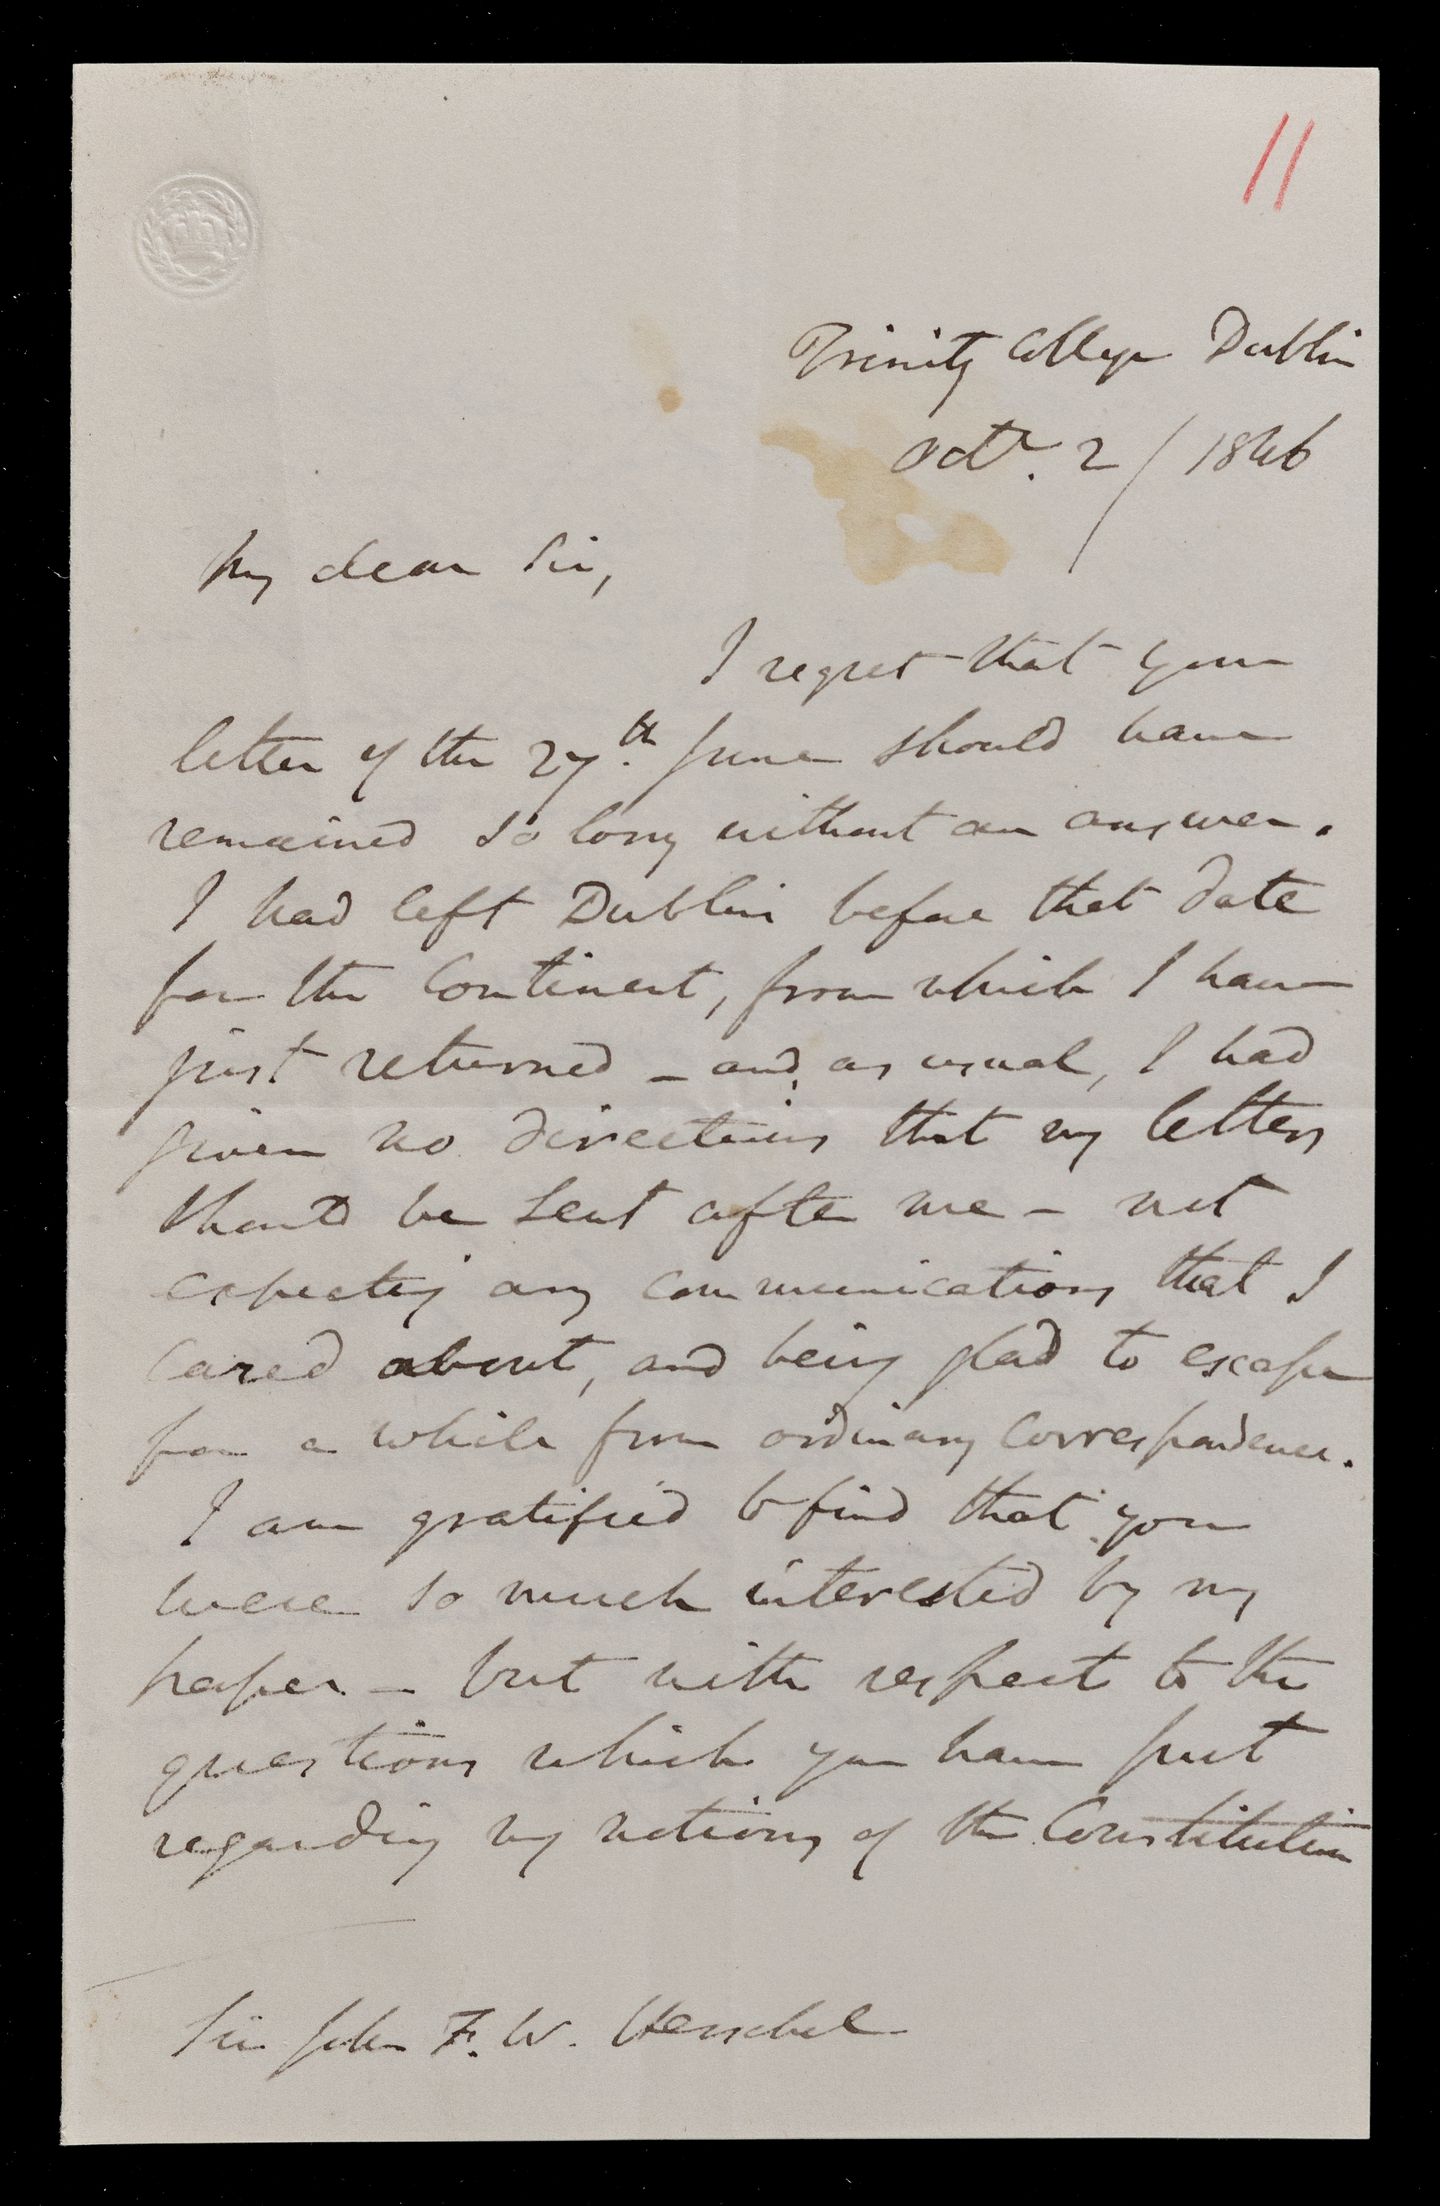 11
Trinity College Dublin
Octr. 2 / 1846
My dear Sir,
I regret that your
letter of the 27th. June should have
remained so long without an answer.
I had left Dublin before that date
for the Continent, from which I have
just returned – and, as usual, I had
given no directions that my letters
should be sent after me – not
expecting any communications that I
cared about, and being glad to escape
for a while from ordinary correspondence.
I am gratified to find that you
were so much interested by my
paper – but with respect to the
questions which you have put
regarding my notions of the Constitution
Sir John F. W. Herschel